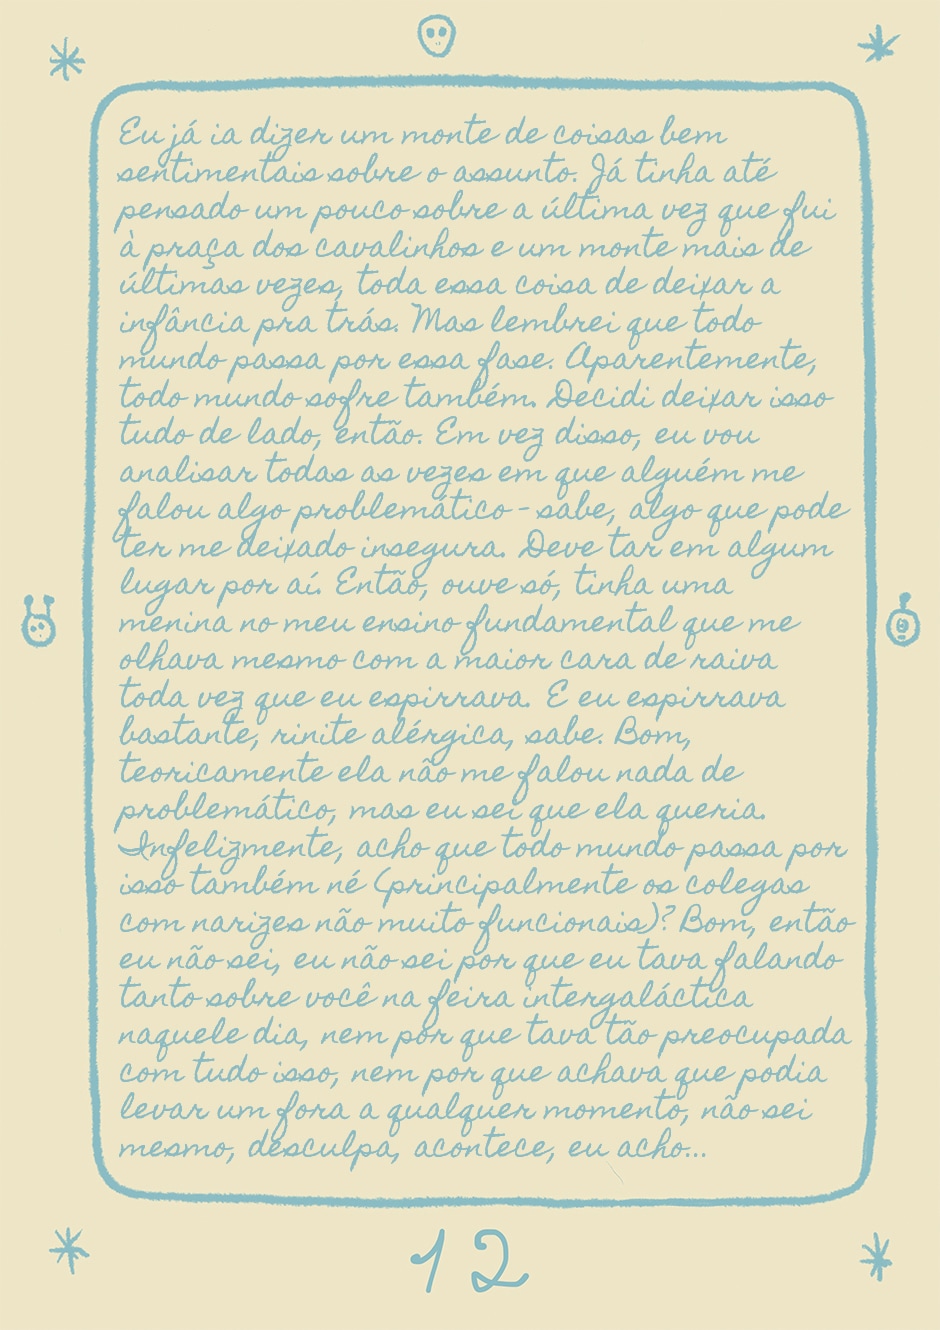 Eu já ia dizer um monte de coisas bem
sentimentais sobre o assunto. Já tinha até
pensado um pouco sobre a última vez que fui
à praça dos cavalinhos e um monte mais de
últimas vezes, toda essa coisa de deixar a
infância pra trás. Mas lembrei que todo
mundo passa por essa fase. Aparentemente,
todo mundo sofre também. Decidi deixar isso
tudo de lado, então. Em vez disso, eu vou
analisar todas as vezes em que alguém me
falou algo problemático - sabe, algo que pode
ter me deixado insegura. Deve tar em algum
lugar por aí. Então, ouve só, tinha uma
menina no meu ensino fundamental que me
olhava mesmo com a maior cara de raiva
toda vez que eu espirrava. E eu espirrava
bastante, rinite alérgica, sabe. Bom,
teoricamente ela não me falou nada de
problemático, mas eu sei que ela queria.
Infelizmente, acho que todo mundo passa por
isso também né (principalmente os colegas
com narizes não muito funcionais)? Bom, então
eu não sei, eu não sei por que eu tava falando
tanto sobre você na feira intergaláctica
naquele dia, nem por que tava tão preocupada
com tudo isso, nem por que achava que podia
levar um fora a qualquer momento, não sei
mesmo, desculpa, acontece, eu acho...
12